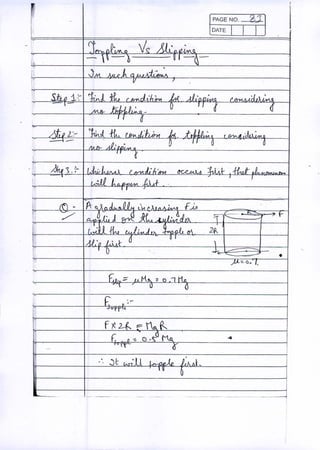 PAGE NO. 31
DATE
Toppling Vs Slipping
In such questions,
Step 1:- Find the condition for slipping considering
no toppling.
Step 2:- Find the condition for toppling considering
no slipping.
Step 3:- Whichever condition occurs first, that phenomenon
will happen first.
Q. A gradually increasing F is
applied on the cylinder.
Will the cylinder topple or
slip first.
F
2R
μ = 0.7
Fslip = μMg = 0.7Mg
Ftopple :-
F×2R = MgR
Ftopple = 0.5 Mg
∴ It will topple first.